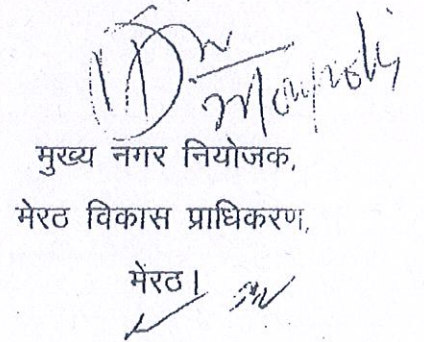 मुख्य नगर नियोजक,
मेरठ विकास प्राधिकरण,
मेरठ।